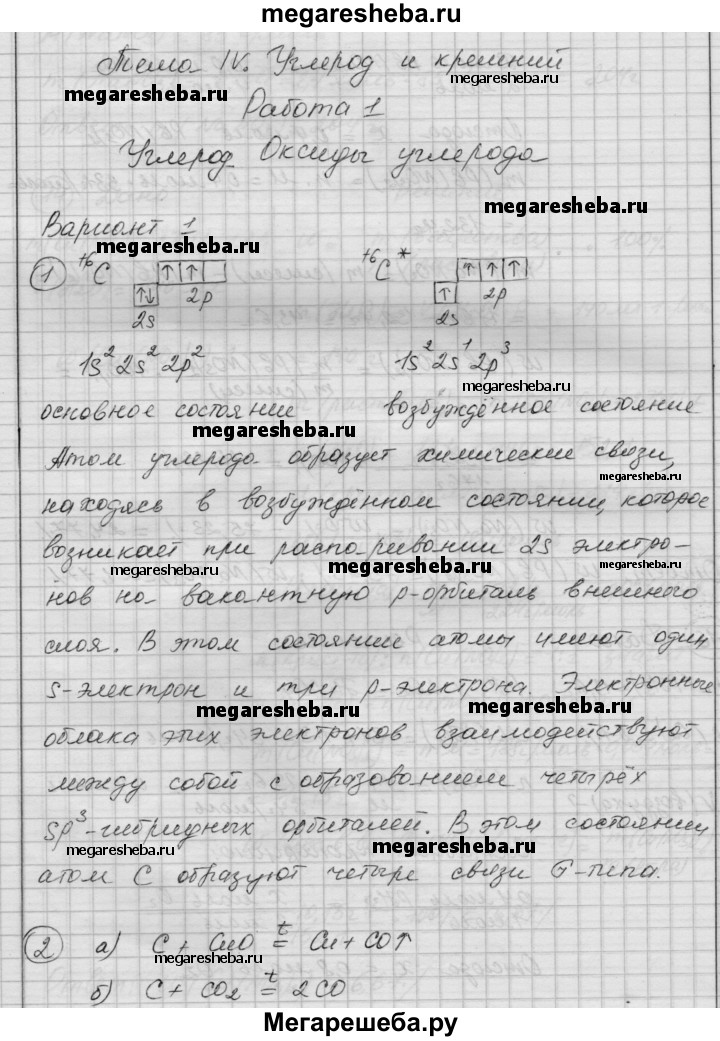 megaresheba.ru
Тема IV. Углерод и кремний
megaresheba.ru
megaresheba.ru
Работа 1
Углерод. Оксиды углерода
Вариант 1
megaresheba.ru
megaresheba.ru
1 +6C ↑ ↑ +6C* ↑ ↑ ↑
↑↓ 2p ↑ 2p
2s 2s
1s² 2s² 2p² 1s² 2s¹ 2p³
megaresheba.ru
основное состояние возбуждённое состояние
megaresheba.ru
Атом углерода образует химические связи,
megaresheba.ru
находясь в возбуждённом состоянии, которое
возникает при распаривании 2s электро-
megaresheba.ru megaresheba.ru megaresheba.ru
нов на вакантную p-орбиталь внешнего
слоя. В этом состоянии атомы имеют один
s-электрон и три p-электрона. Электронные
megaresheba.ru megaresheba.ru
облака этих электронов взаимодействуют
между собой с образованием четырёх
sp³-гибридных орбиталей. В этом состоянии
megaresheba.ru megaresheba.ru
атом C образуют четыре связи σ-типа.
2 а) C + CuO =t Cu + CO↑
megaresheba.ru megaresheba.ru
б) C + CO₂ =t 2CO
Мегарешеба.ру